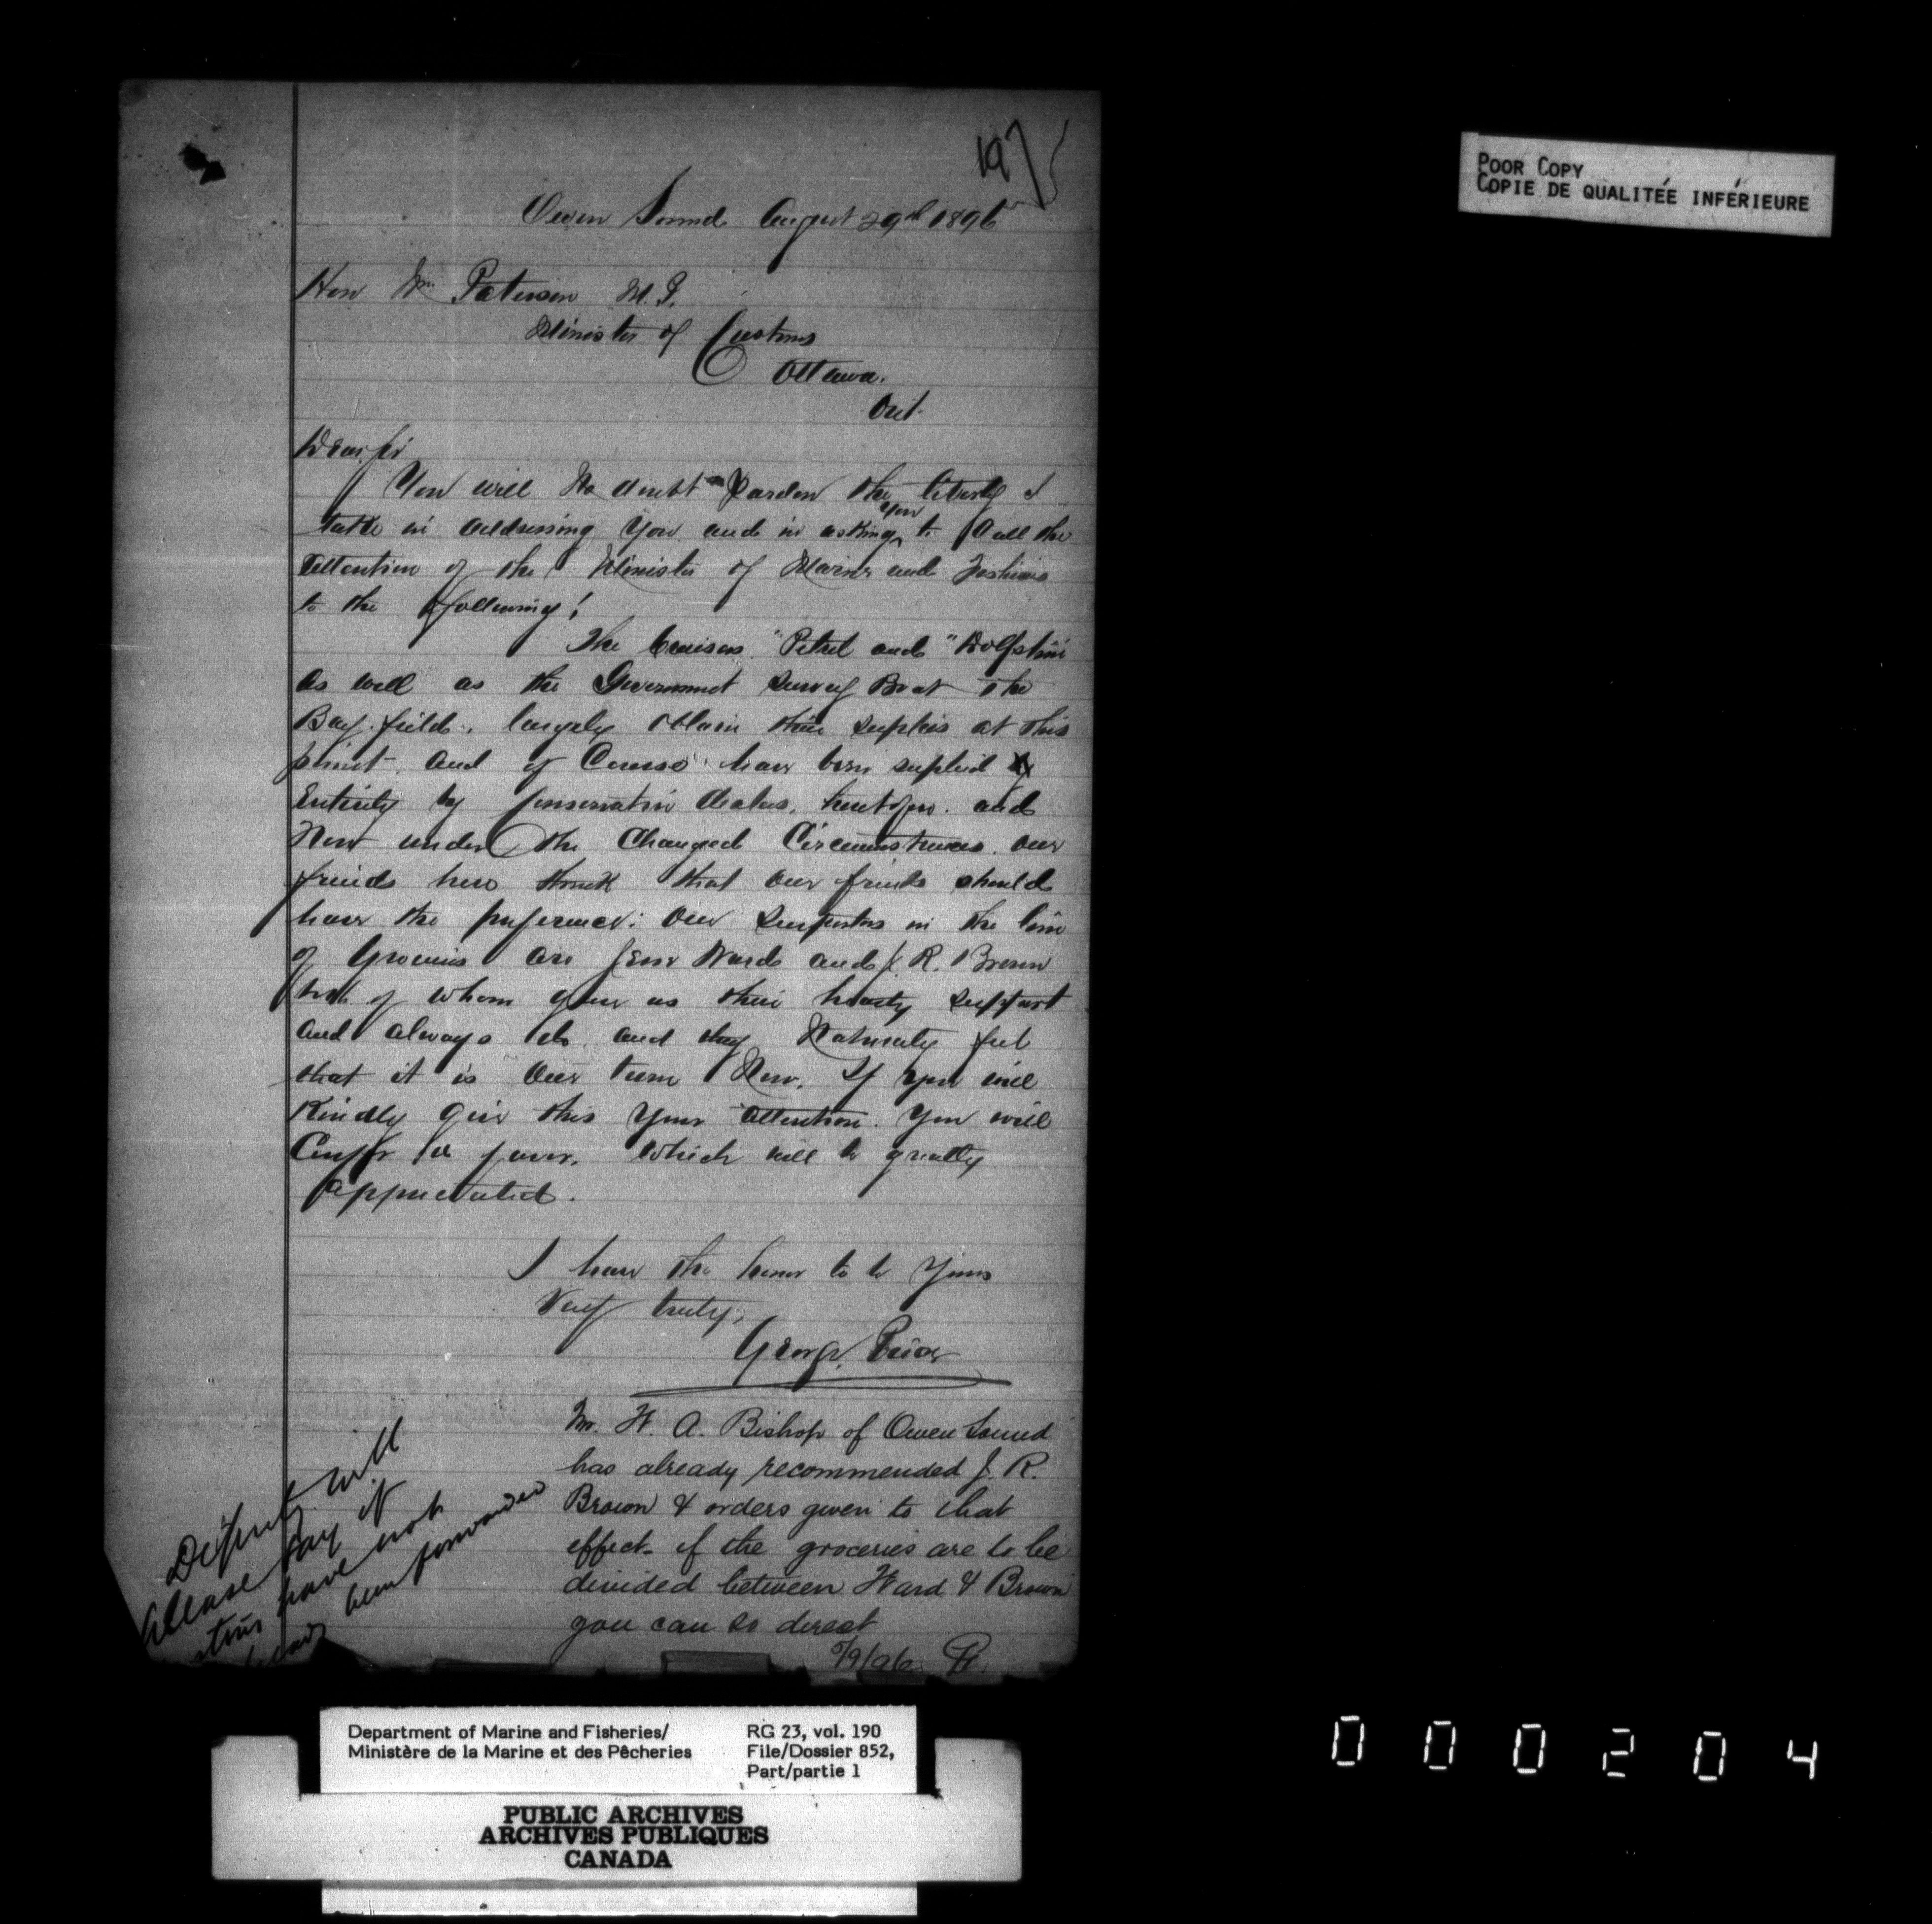 197
Owen Sound August 29th 1896
Hon Wm Paterson M.P.
Minister of Customs
Ottawa.
Ont.
Dear Sir
You will No doubt Pardon the liberty I
take in addressing You and in asking you to Call the
attention of the Minister of Marine and Fisheries
to the following!
The Cruisers "Petrel and "Dolphin
as well as the Government Survey Boat The
Bayfield. largely obtain their supplies at this
point and of Course have been supplied
Entirely by Conservative dealers, heretofore. and
Now under the Changed Circumstances our
friends here think that our friends should
have the preference: Our Supporters in the line
of Groceries are Ward and J. R. Brown
both of whom gave us their hearty support
and always do and they Naturaly feel
that it is our turn Now. If you will
Kindly give this your attention. You will
Confer a favor. Which will be greatly
appreciated.
I have the honor to be Yours
Very truly,
George Price
Mr. H. A. Bishop of Owen Sound
has already recommended J. R.
Brown & orders given to that
effect - if the groceries are to be
divided between Ward & Brown
you can so direct
5/9/96
will
please say if
have not
been forwarded
POOR COPY
COPIE DE QUALITÉE INFÉRIEURE
Department of Marine and Fisheries/
Ministère de la Marine et des Pêcheries
RG 23, vol. 190
File/Dossier 852,
Part/partie 1
PUBLIC ARCHIVES
ARCHIVES PUBLIQUES
CANADA
000204